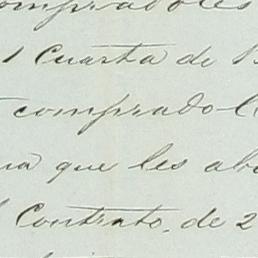 compradores
1 Cuarta de
comprado
que les
Contrato, de 2